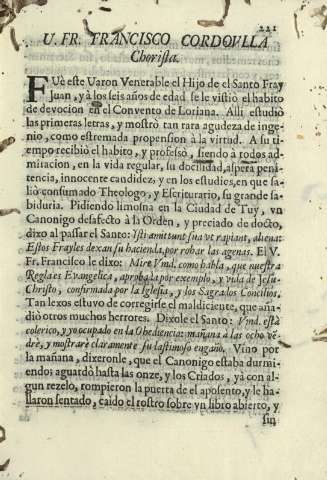 221
V. FR. FRANCISCO CORDOVLLA
Chorista.
FUè este Varon Venerable el Hijo de el Santo Fray
Juan, y à los seis años de edad se le vistiò el habito
de devocion en el Convento de Loriana. Alli estudiò
las primeras letras, y mostrò tan rara agudeza de inge-
nio, como estremada propension à la virtud. A su ti-
empo recibiò el habito, y professò, siendo à todos ad-
miracion, en la vida regular, su docilidad, aspera peni-
tencia, innocente candidez, y en los estudios, en que sa-
liò consumado Theologo, y Escriturario, su grande sa-
biduria. Pidiendo limosna en la Ciudad de Tuy, vn
Canonigo desafecto à la Orden, y preciado de docto,
dixo al passar el Santo: Isti amittunt sua vt rapiant, aliena:
Estos Frayles dexan su hacienda, por robar las agenas. El V.
Fr. Francisco le dixo: Mire Vmd. como habla, que nuestra
Regla es Evangelica, aprobada por exemplo, y vida de Jesu-
Christo, confirmada por la Iglesia, y los Sagrados Concilios.
Tan lexos estuvo de corregirse el maldiciente, que aña-
diò otros muchos herrores. Dixole el Santo: Vmd. està
colerico, y yo ocupado en la Obediencia: mañana à las ocho ve-
drè, y mostrarè claramente su lastimoso engaño. Vino por
la mañana, dixeronle, que el Canonigo estaba durmi-
endo: aguardò hasta las onze, y los Criados, yà con al-
gun rezelo, rompieron la puerta de el aposento, y le ha-
llaron sentado, caido el rostro sobre vn libro abierto, y
sin